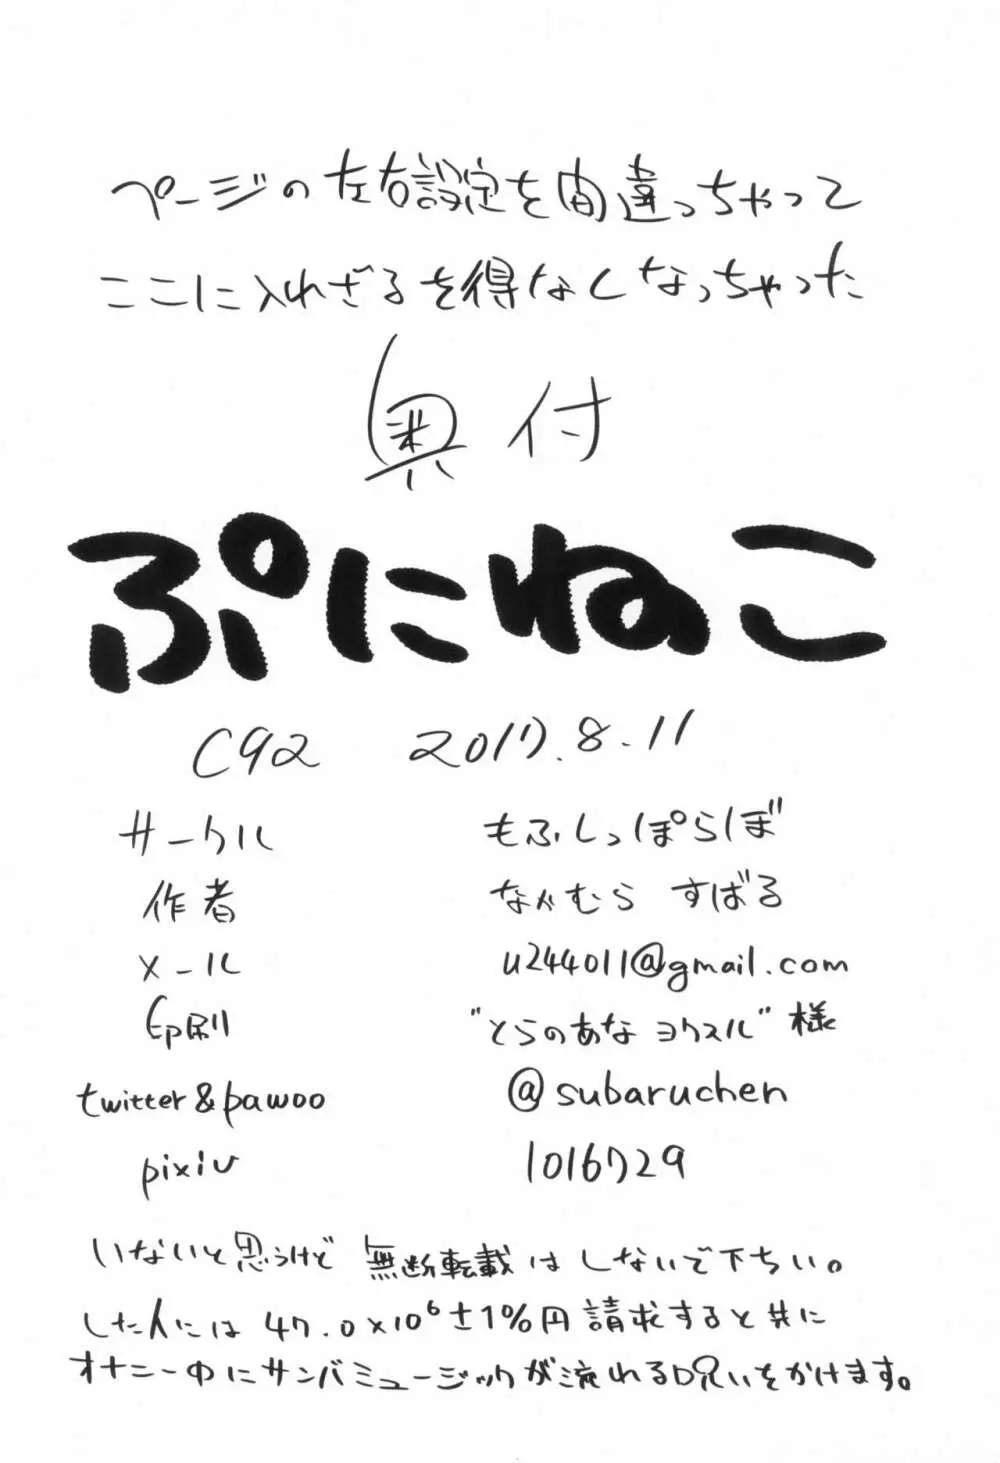 ページの左右設定を間違っちゃって
ここに入れざるを得なくなっちゃった
奥付
ぷにねこ
C92 2017.8.11
サークル もふしっぽらぼ
作者 なかむら すばる
メール u244011@gmail.com
印刷 "とらのあな ヨクスル"様
twitter&pawoo @subaruchen
pixiv 1016729
いないと思うけど 無断転載はしないで下ちい。
した人には 47.0×10⁶±1%円請求すると共に
オナニー中にサンバミュージックが流れる呪いをかけます。